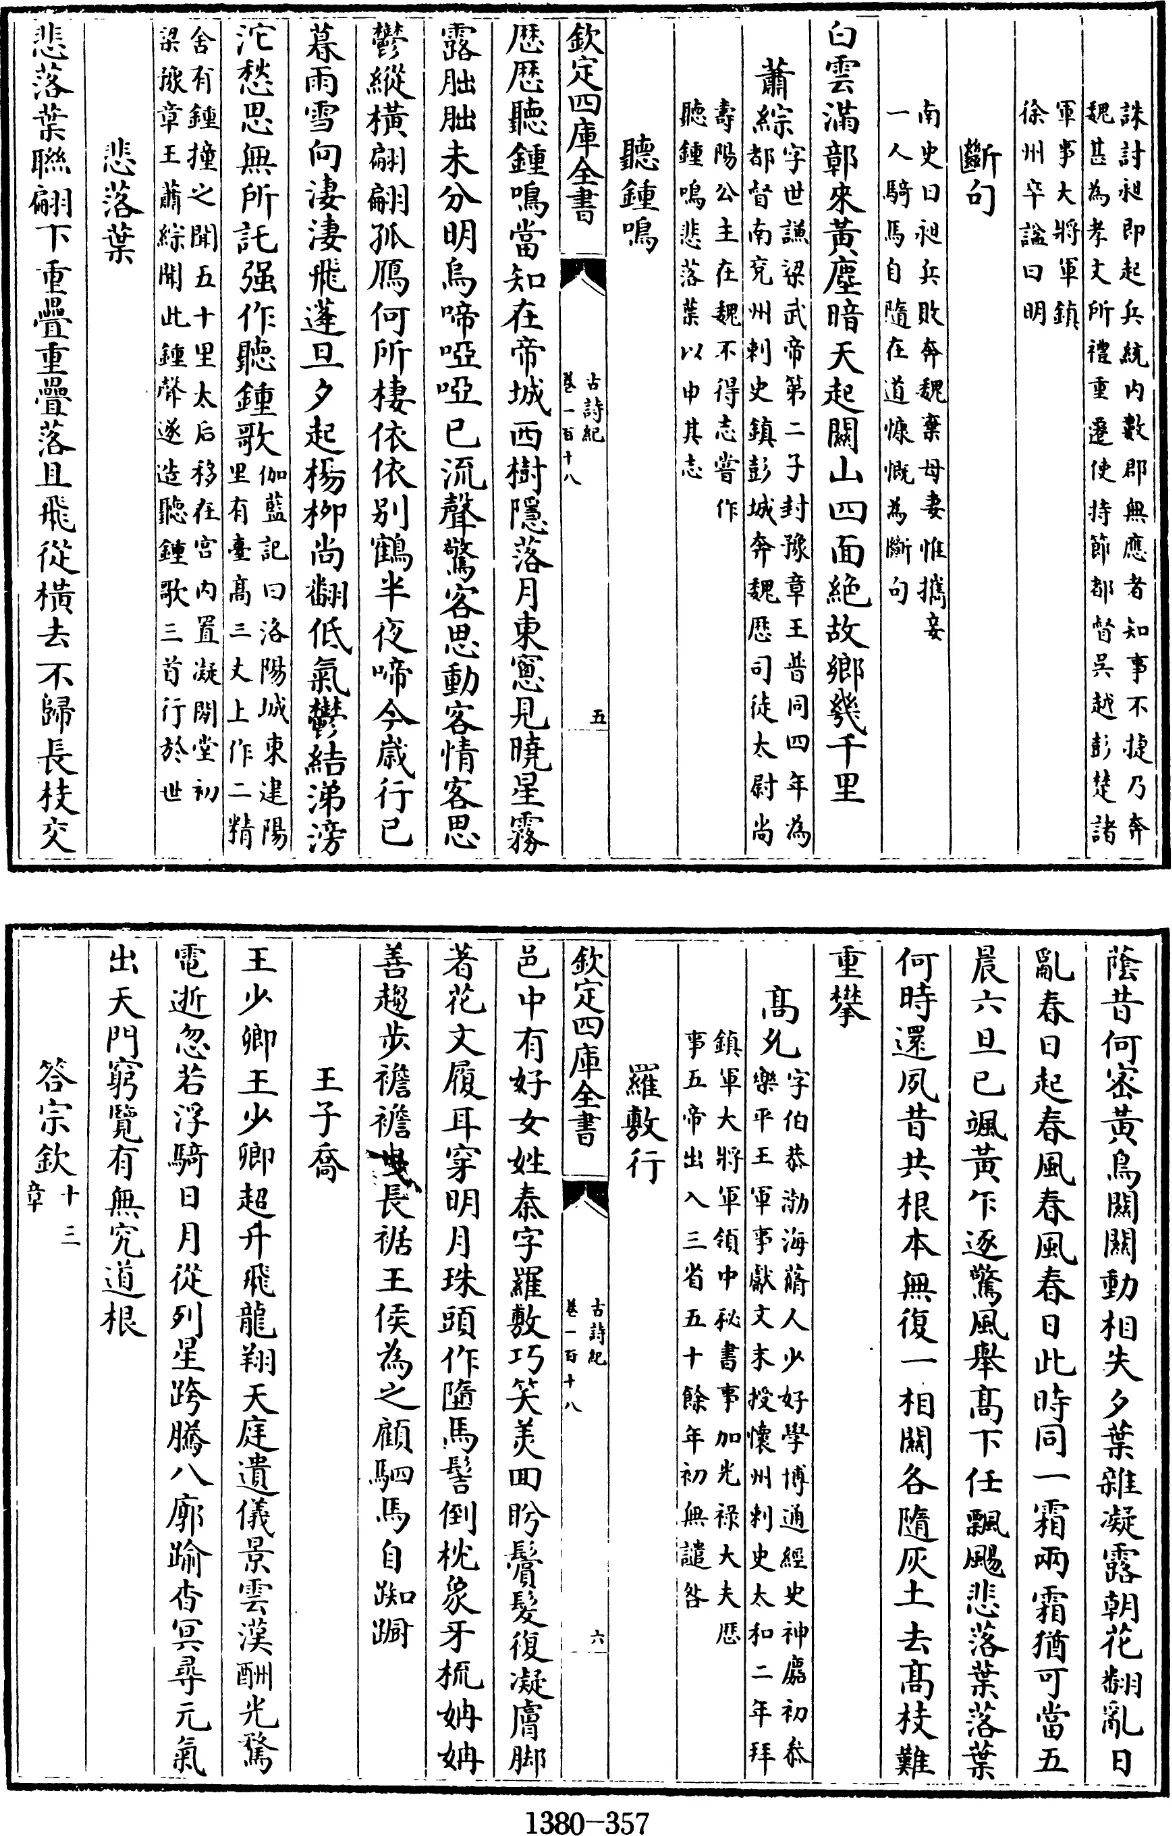 誅討昶即起兵統内數郡無應者知事不捷乃奔
魏甚為孝文所禮重遷使持節都督吳越彭楚諸
軍事大將軍鎮
徐州卒諡曰明
斷句
南史曰昶兵敗奔魏棄母妻惟攜妾
一人騎馬自隨在道慷慨為斷句
白雲滿鄣來黃塵暗天起關山四面絶故鄉幾千里
蕭綜字世謙梁武帝第二子封豫章王普同四年為
都督南兗州刺史鎮彭城奔魏歴司徒太尉尚
壽陽公主在魏不得志嘗作
聽鍾鳴悲落葉以申其志
聽鍾鳴
欽定四庫全書
古詩紀
卷一百十八
五
歴歴聽鍾鳴當知在帝城西樹隱落月東窻見曉星霧
露朏朏未分明烏啼啞啞已流聲驚客思動客情客思
鬱縱橫翩翩孤鴈何所棲依依别鶴半夜啼今歲行已
暮雨雪向淒淒飛蓬旦夕起楊柳尚翻低氣鬱結涕滂
沱愁思無所託强作聽鍾歌伽藍記曰洛陽城東建陽
里有臺髙三丈上作二精
舍有鍾撞之聞五十里太后移在宫内置凝閒堂初
梁豫章王蕭綜聞此鍾聲遂造聽鍾歌三首行於世
悲落葉
悲落葉聯翩下重疊重疊落且飛從橫去不歸長枝交
蔭昔何宻黃鳥關關動相失夕葉雜凝露朝花翻亂日
亂春日起春風春風春日此時同一霜兩霜猶可當五
晨六旦已颯黃乍逐驚風舉髙下任飄颺悲落葉落葉
何時還夙昔共根本無復一相關各隨灰土去髙枝難
重攀
髙允字伯恭渤海蓨人少好學博通經史神䴥初叅
樂平王軍事獻文末授懷州刺史太和二年拜
鎮軍大將軍領中秘書事加光祿大夫歴
事五帝出入三省五十餘年初無譴咎
羅敷行
欽定四庫全書
古詩紀
卷一百十八
六
邑中有好女姓秦字羅敷巧笑美回盼鬢髮復凝膚脚
著花文履耳穿明月珠頭作墮馬髻倒枕象牙梳姌姌
善趨步襜襜曳長裾王侯為之顧駟馬自踟蹰
王子喬
王少卿王少卿超升飛龍翔天庭遺儀景雲漢酬光騖
電逝忽若浮騎日月從列星跨騰八廓踰杳冥尋元氣
出天門窮覽有無究道根
答宗欽十三
章
1380-357